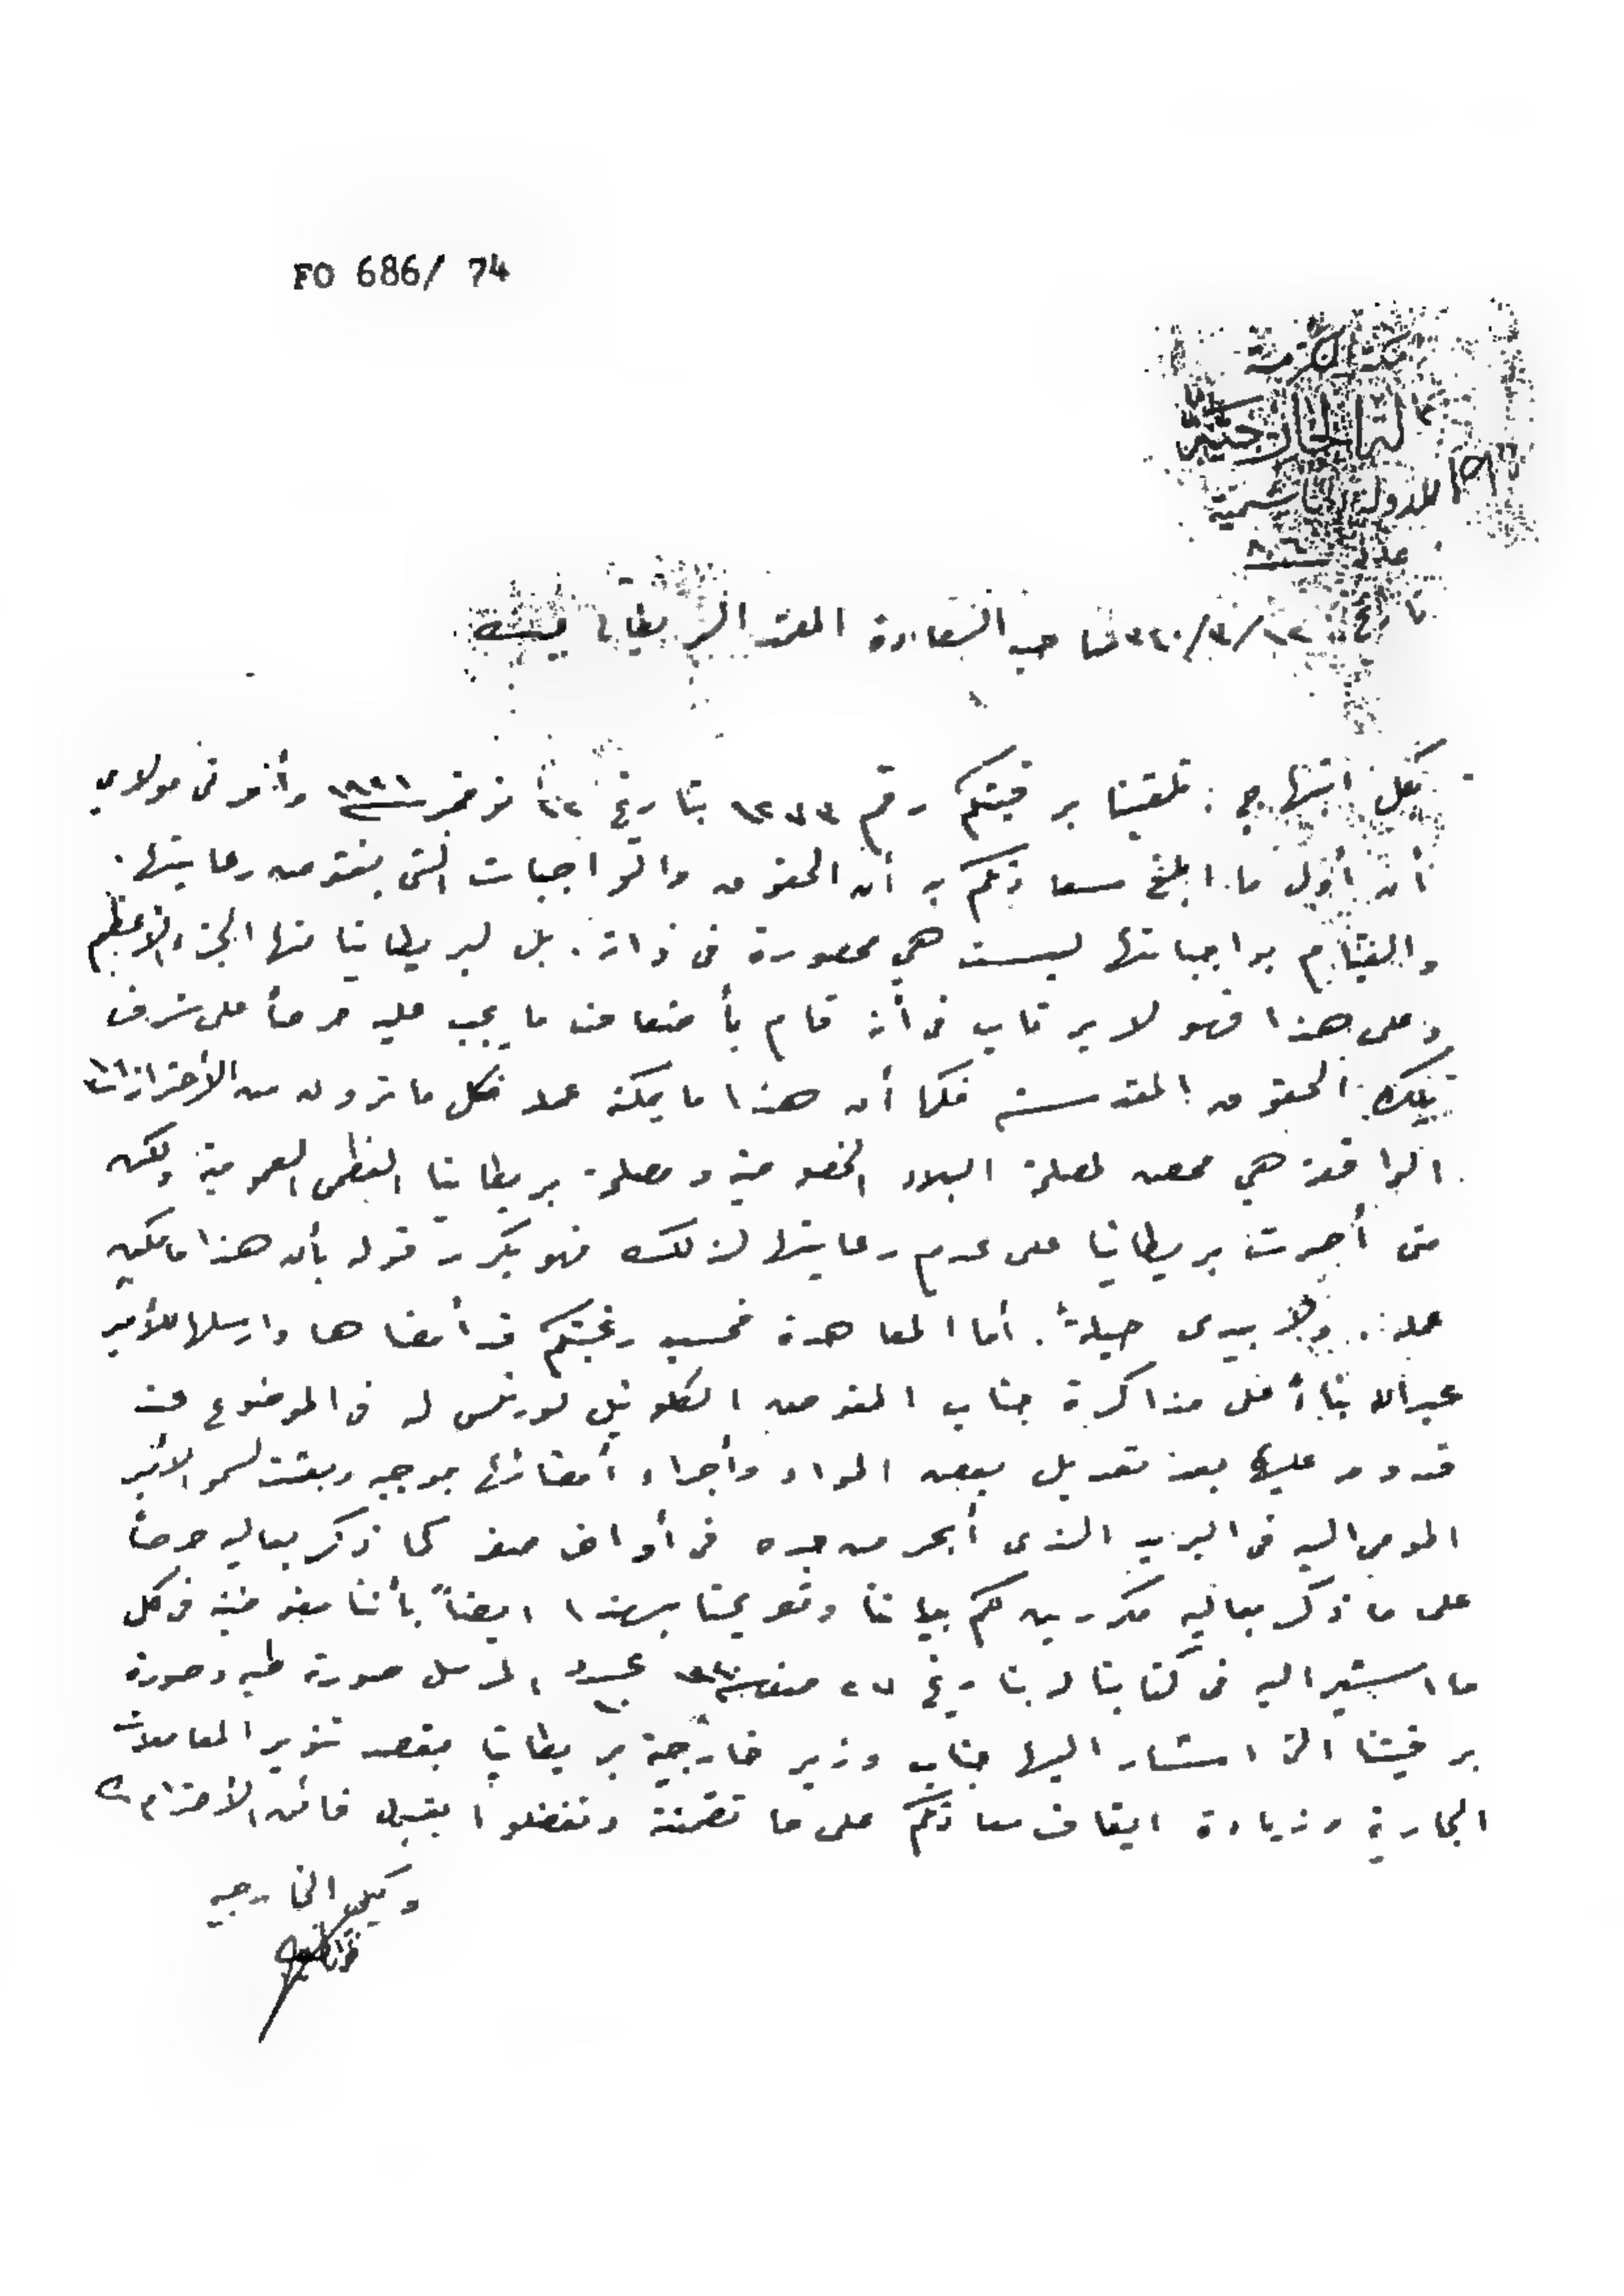 FO 686/ 74
مكة المكرمة
الخارجية
للدولة الهاشمية
عدد
تاريخ
صاحب السعادة المعتمد البريطاني بجده
بكل ابتهاج تلقينا برقيتكم رقم بتاريخ نوفمبر وأمرني مولاي
أن أول ما ابلغ سعادتكم به أن الحقوق والواجبات التي رعايتها
والقيام بواجباتها ليست هي محصورة في ذاته. بل لبريطانيا منها الجزء الأعظم
وعلى هذا فهو لا يرتاب في أنه قام بأضعاف ما يجب عليه حرصاً على شرف
تلك الحقوق المقدسة فكما أن هذا ما يمكنه عمله فكل ما ترونه من الأحترازات
الواقعة هي محض لمصلحة البلاد الخصوصية ومصلحة بريطانيا العظمى العمومية ولكن
متى أصرت بريطانيا على عدم رعايتها لذلك فهو يكرر قوله بأن هذا ما يمكنه
عمله. ولا يبدى حيلة. أما المعاهدة فحسب رغبتكم قد أمضاها وارسلها للأمير
عبدالله بناءً على مذاكرة جناب المفوض الكلونيل لورنس له في الموضوع
عليها بعد تعديل بعض المواد وأجراء أمضائها بموجبه وبعثت لسمو الأمير
المومى اليه في البريد الذى أبحر من جده في أواخر صفر كما ذكر بعاليه حرصاً
على ما ذكر بعاليه مكررين لكم بياننا بهذا ايضاً بأننا في كل
ما اشير اليه في كتابنا لد بتاريخ ٢٧ صفر المرسل صورة طيه وصورة
برقيتنا التي اشار اليها جناب وزير خارجية بريطانيا بقصد تنوير المعاملات
الجارية وزيادة ايقاف سعادتكم على ما تضمنته وتفضلوا بقبول فائق الأحترام
وكيل الخارجيه